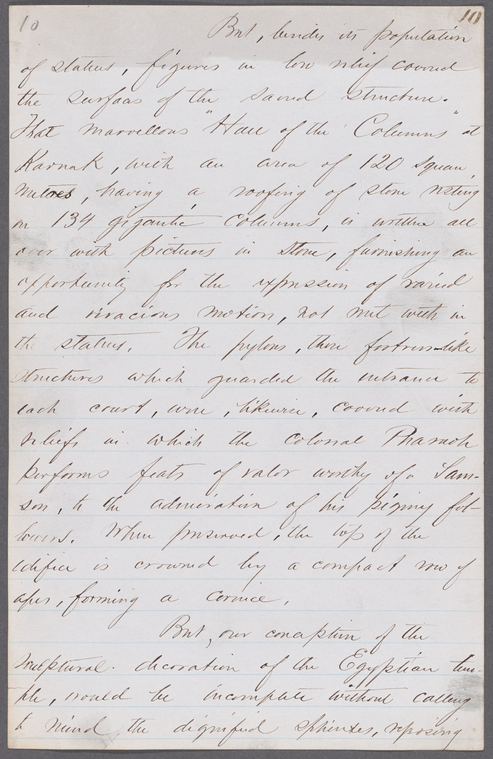 10 10
But, besides its population
of statues, figures in low relief covered
the surfaces of the sacred structure.
That marvellous "Hall of the Columns" at
Karnak, with an area of 120 square
metres, having a roofing of stone resting
on 134 gigantic columns, is written all
over with pictures in stone, furnishing an
opportunity for the expression of varied
and vivacious motion, not met with in
the statues. The pylons, those fortress-like
structures which guarded the entrance to
each court, were, likewise, covered with
reliefs in which the colossal Pharaoh
performs feats of valor worthy of a Sam-
son, to the admiration of his pigmy fol-
lowers. When preserved, the top of the
edifice is crowned by a compact row of
apes, forming a cornice.
But, our conception of the
sculptural decoration of the Egyptian tem-
ple, would be incomplete without calling
to mind the dignified sphinxes, reposing